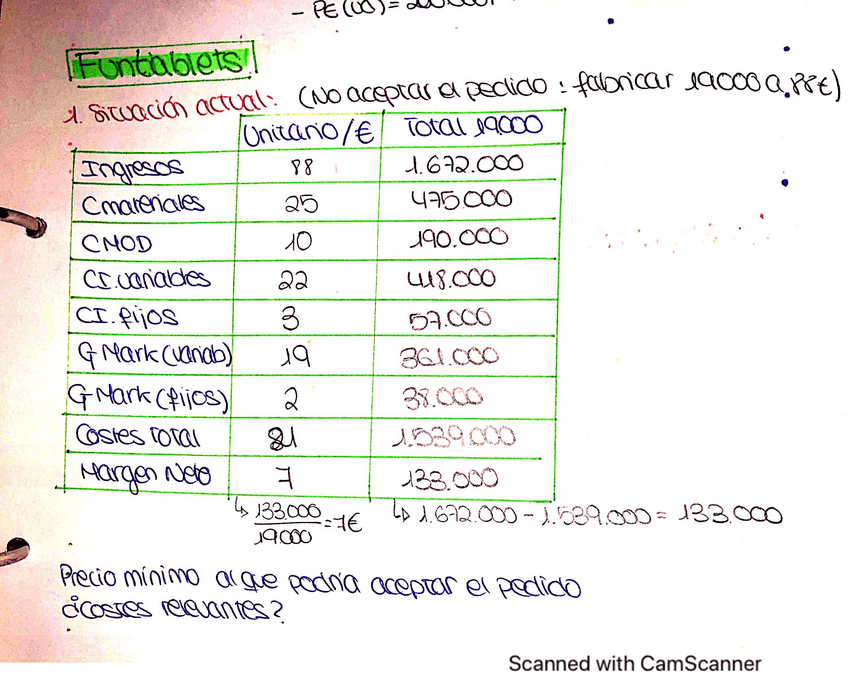 - PE (UD) =
Funtablets
1. Situación actual: (No aceptar el pedido : fabricar 19000 a 88€)
Unitario/€ Total 19000
Ingresos 88 1.672.000
Cmateriales 25 475.000
CMOD 10 190.000
CI.variables 22 418.000
CI.fijos 3 57.000
G Mark (variab) 19 361.000
G Mark (fijos) 2 38.000
Costes total 81 1.539.000
Margen Neto 7 133.000
↳ 133.000 / 19000 = 7€ ↳ 1.672.000 - 1.539.000 = 133.000
Precio mínimo al que podría aceptar el pedido
¿costes relevantes?
Scanned with CamScanner